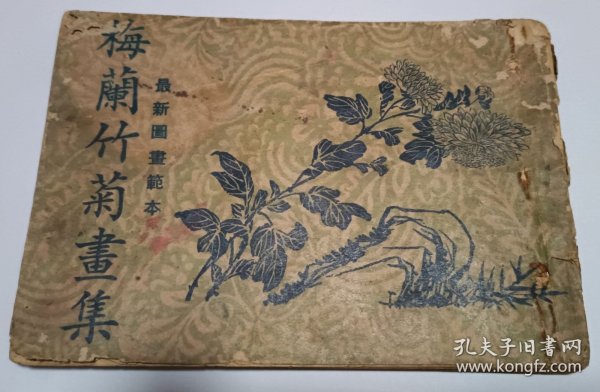 梅蘭竹菊畫集
最新圖畫範本
孔夫子旧书网
www.kongfz.com